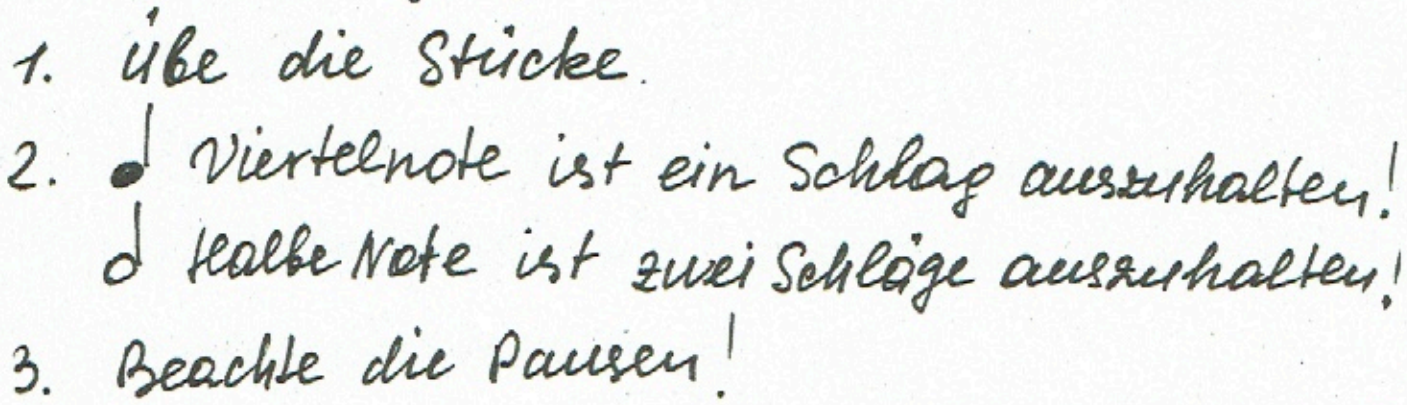 1. Übe die Stücke.
2. ♩ Viertelnote ist ein Schlag auszuhalten!
𝅗𝅥 Halbe Note ist zwei Schläge auszuhalten!
3. Beachte die Pausen!